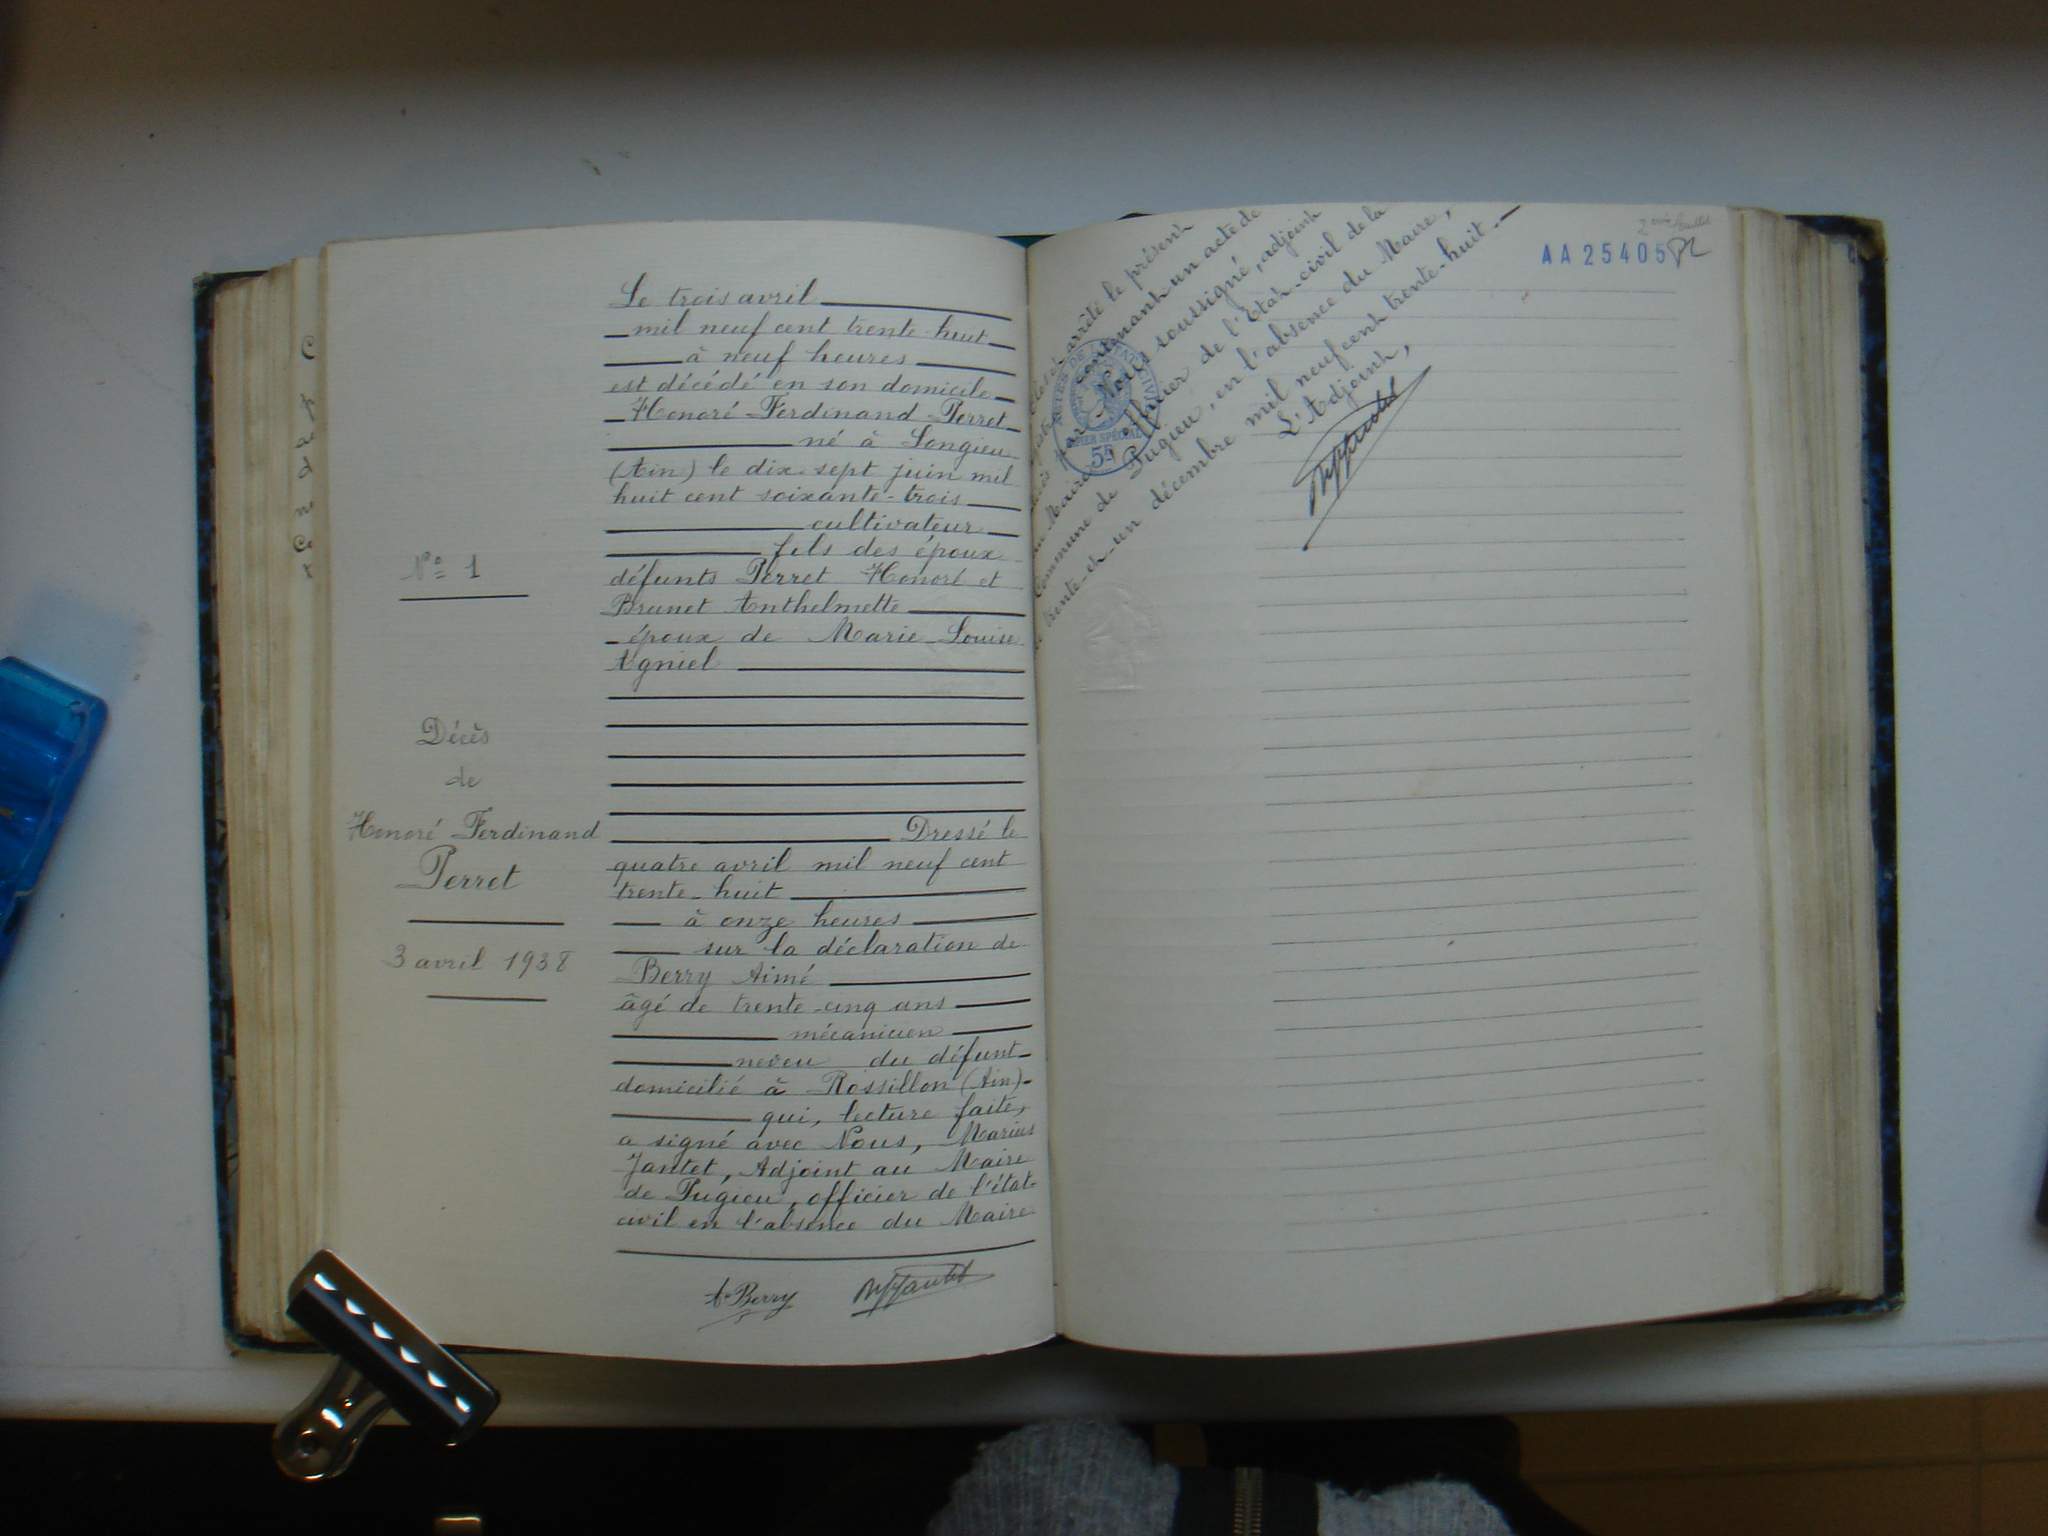 Le trois avril
mil neuf cent trente-huit
à neuf heures
est décédé en son domicile
Honoré Ferdinand Perret
né à Songieu
(Ain) le dix sept juin mil
huit cent soixante-trois
cultivateur
fils des époux
défunts Perret Honoré et
Brunet Anthelmette
époux de Marie-Louise
Agniel
Dressé le
quatre avril mil neuf cent
trente-huit
à onze heures
sur la déclaration de
Berry Aimé
âgé de trente-cinq ans
mécanicien
neveu du défunt
domicilié à Rossillon (Ain)
qui, lecture faite,
a signé avec Nous, Marius
Jantet, Adjoint au Maire
de Pugieu, officier de l'état-
civil en l'absence du Maire
A. Berry
N° 1
Décès
de
Honoré Ferdinand
Perret
3 avril 1938
2ème feuillet
AA 25405
arrêté le présent
contenant un acte de
par Nous soussigné, adjoint
au Maire officier de l'Etat-civil de la
Commune de Pugieu, en l'absence du Maire,
trente-et-un décembre mil neuf cent trente-huit
L'Adjoint,